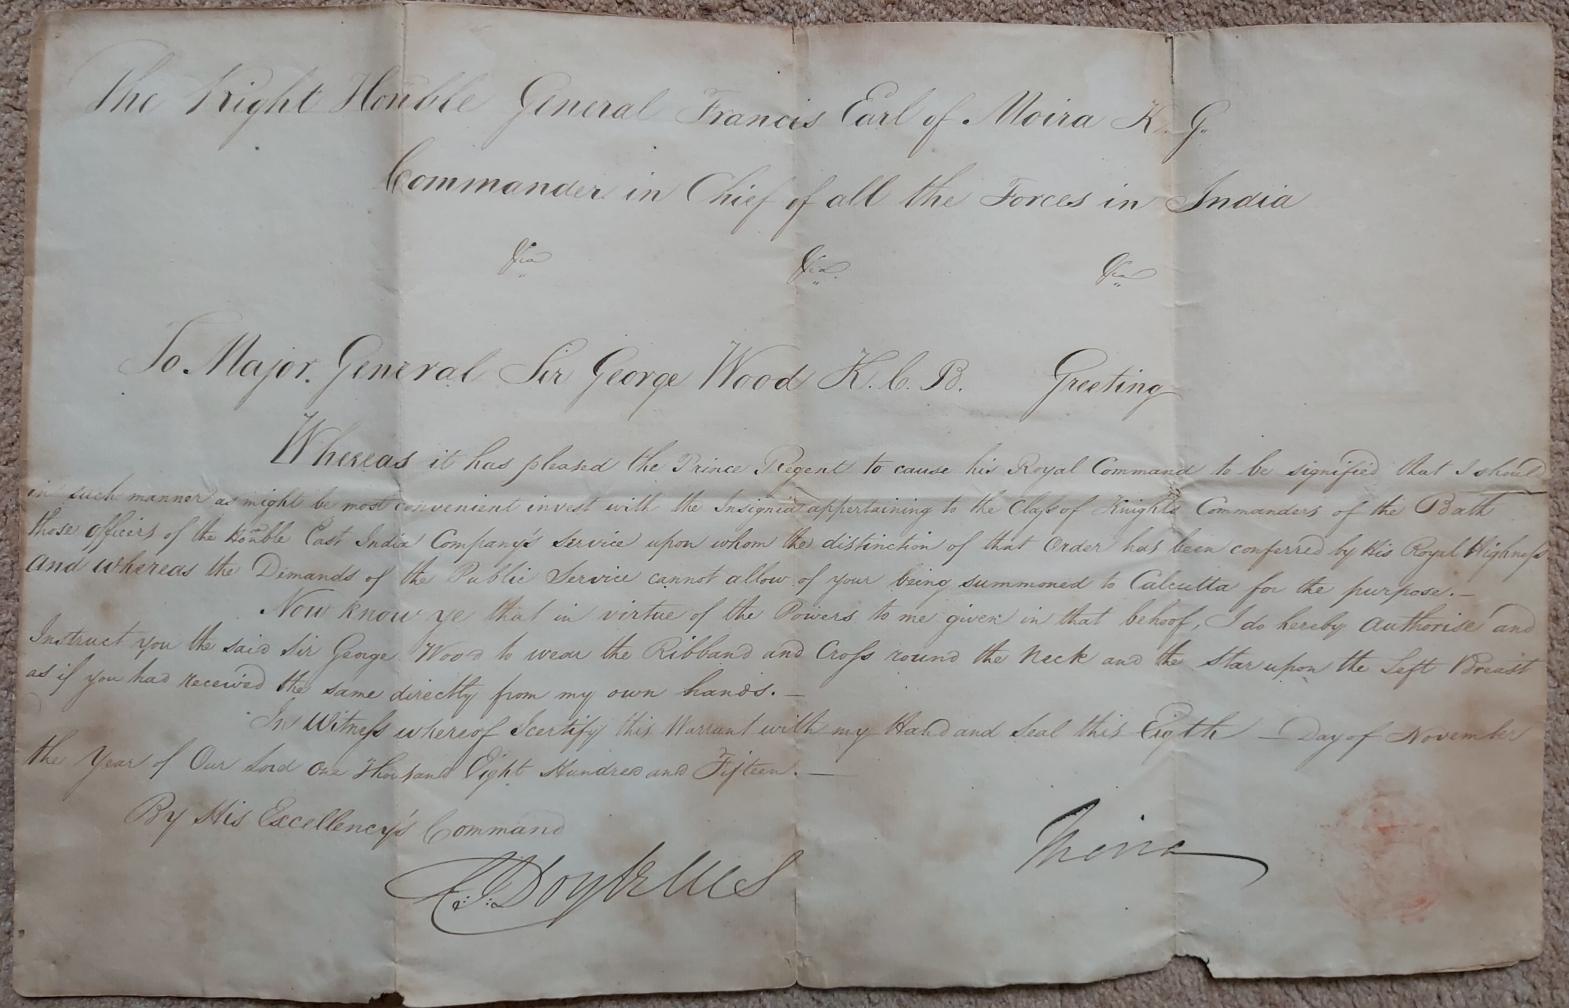 The Right Honble General Francis Earl of Moira K. G.
Commander in Chief of all the Forces in India
&ca &ca &ca
To Major General Sir George Wood K. C. B. Greeting
Whereas it has pleased the Prince Regent to cause his Royal Command to be signified that I should
in such manner as might be most convenient invest with the Insignia appertaining to the Class of Knights Commanders of the Bath
those officers of the Honble East India Company's Service upon whom the distinction of that Order has been conferred by His Royal Highness
And whereas the Demands of the Public Service cannot allow of your being summoned to Calcutta for the purpose. —
Now know ye that in virtue of the Powers to me given in that behoof, I do hereby Authorise and
Instruct you the said Sir George Wood to wear the Ribband and Cross round the Neck and the Star upon the Left Breast
as if you had received the same directly from my own hands. —
In Witness whereof I certify this Warrant with my Hand and Seal this Eigth — Day of November
the Year of Our Lord One Thousand Eight Hundred and Fifteen. —
By His Excellency's Command
Moira
C. J. Doyle MS